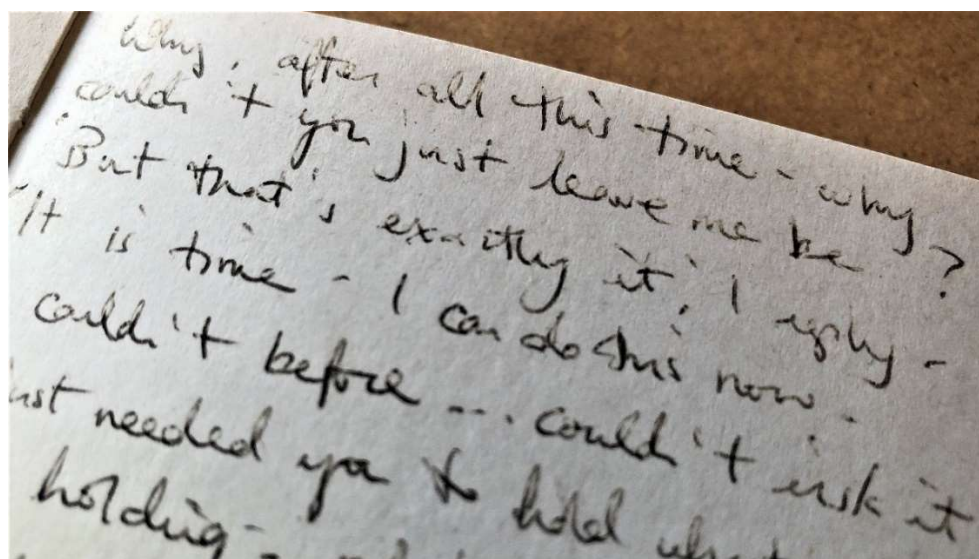 Why, after all this time - why
couldn't you just leave me be?
'But that's exactly it', I reply -
'It is time - I can do this now -
couldn't before ... couldn't risk it
just needed you to hold what
holding -